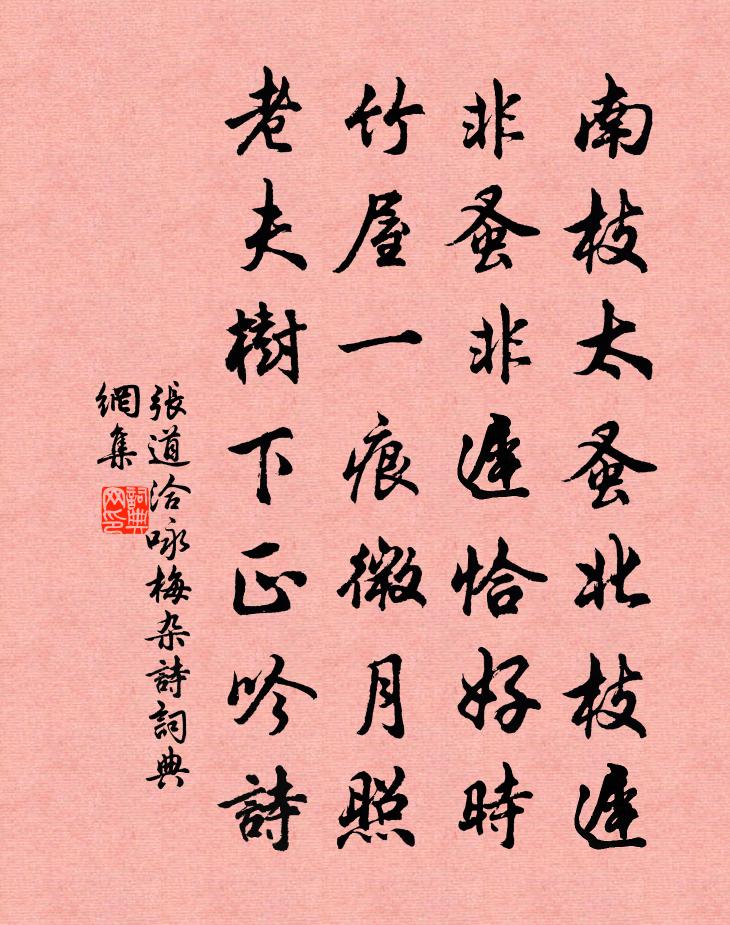 南枝太蚤北枝遲
非蚤非遲恰好時
竹屋一痕微月照
老夫樹下正吟詩
張道洽咏梅杂詩詞典
網集
詞典网印